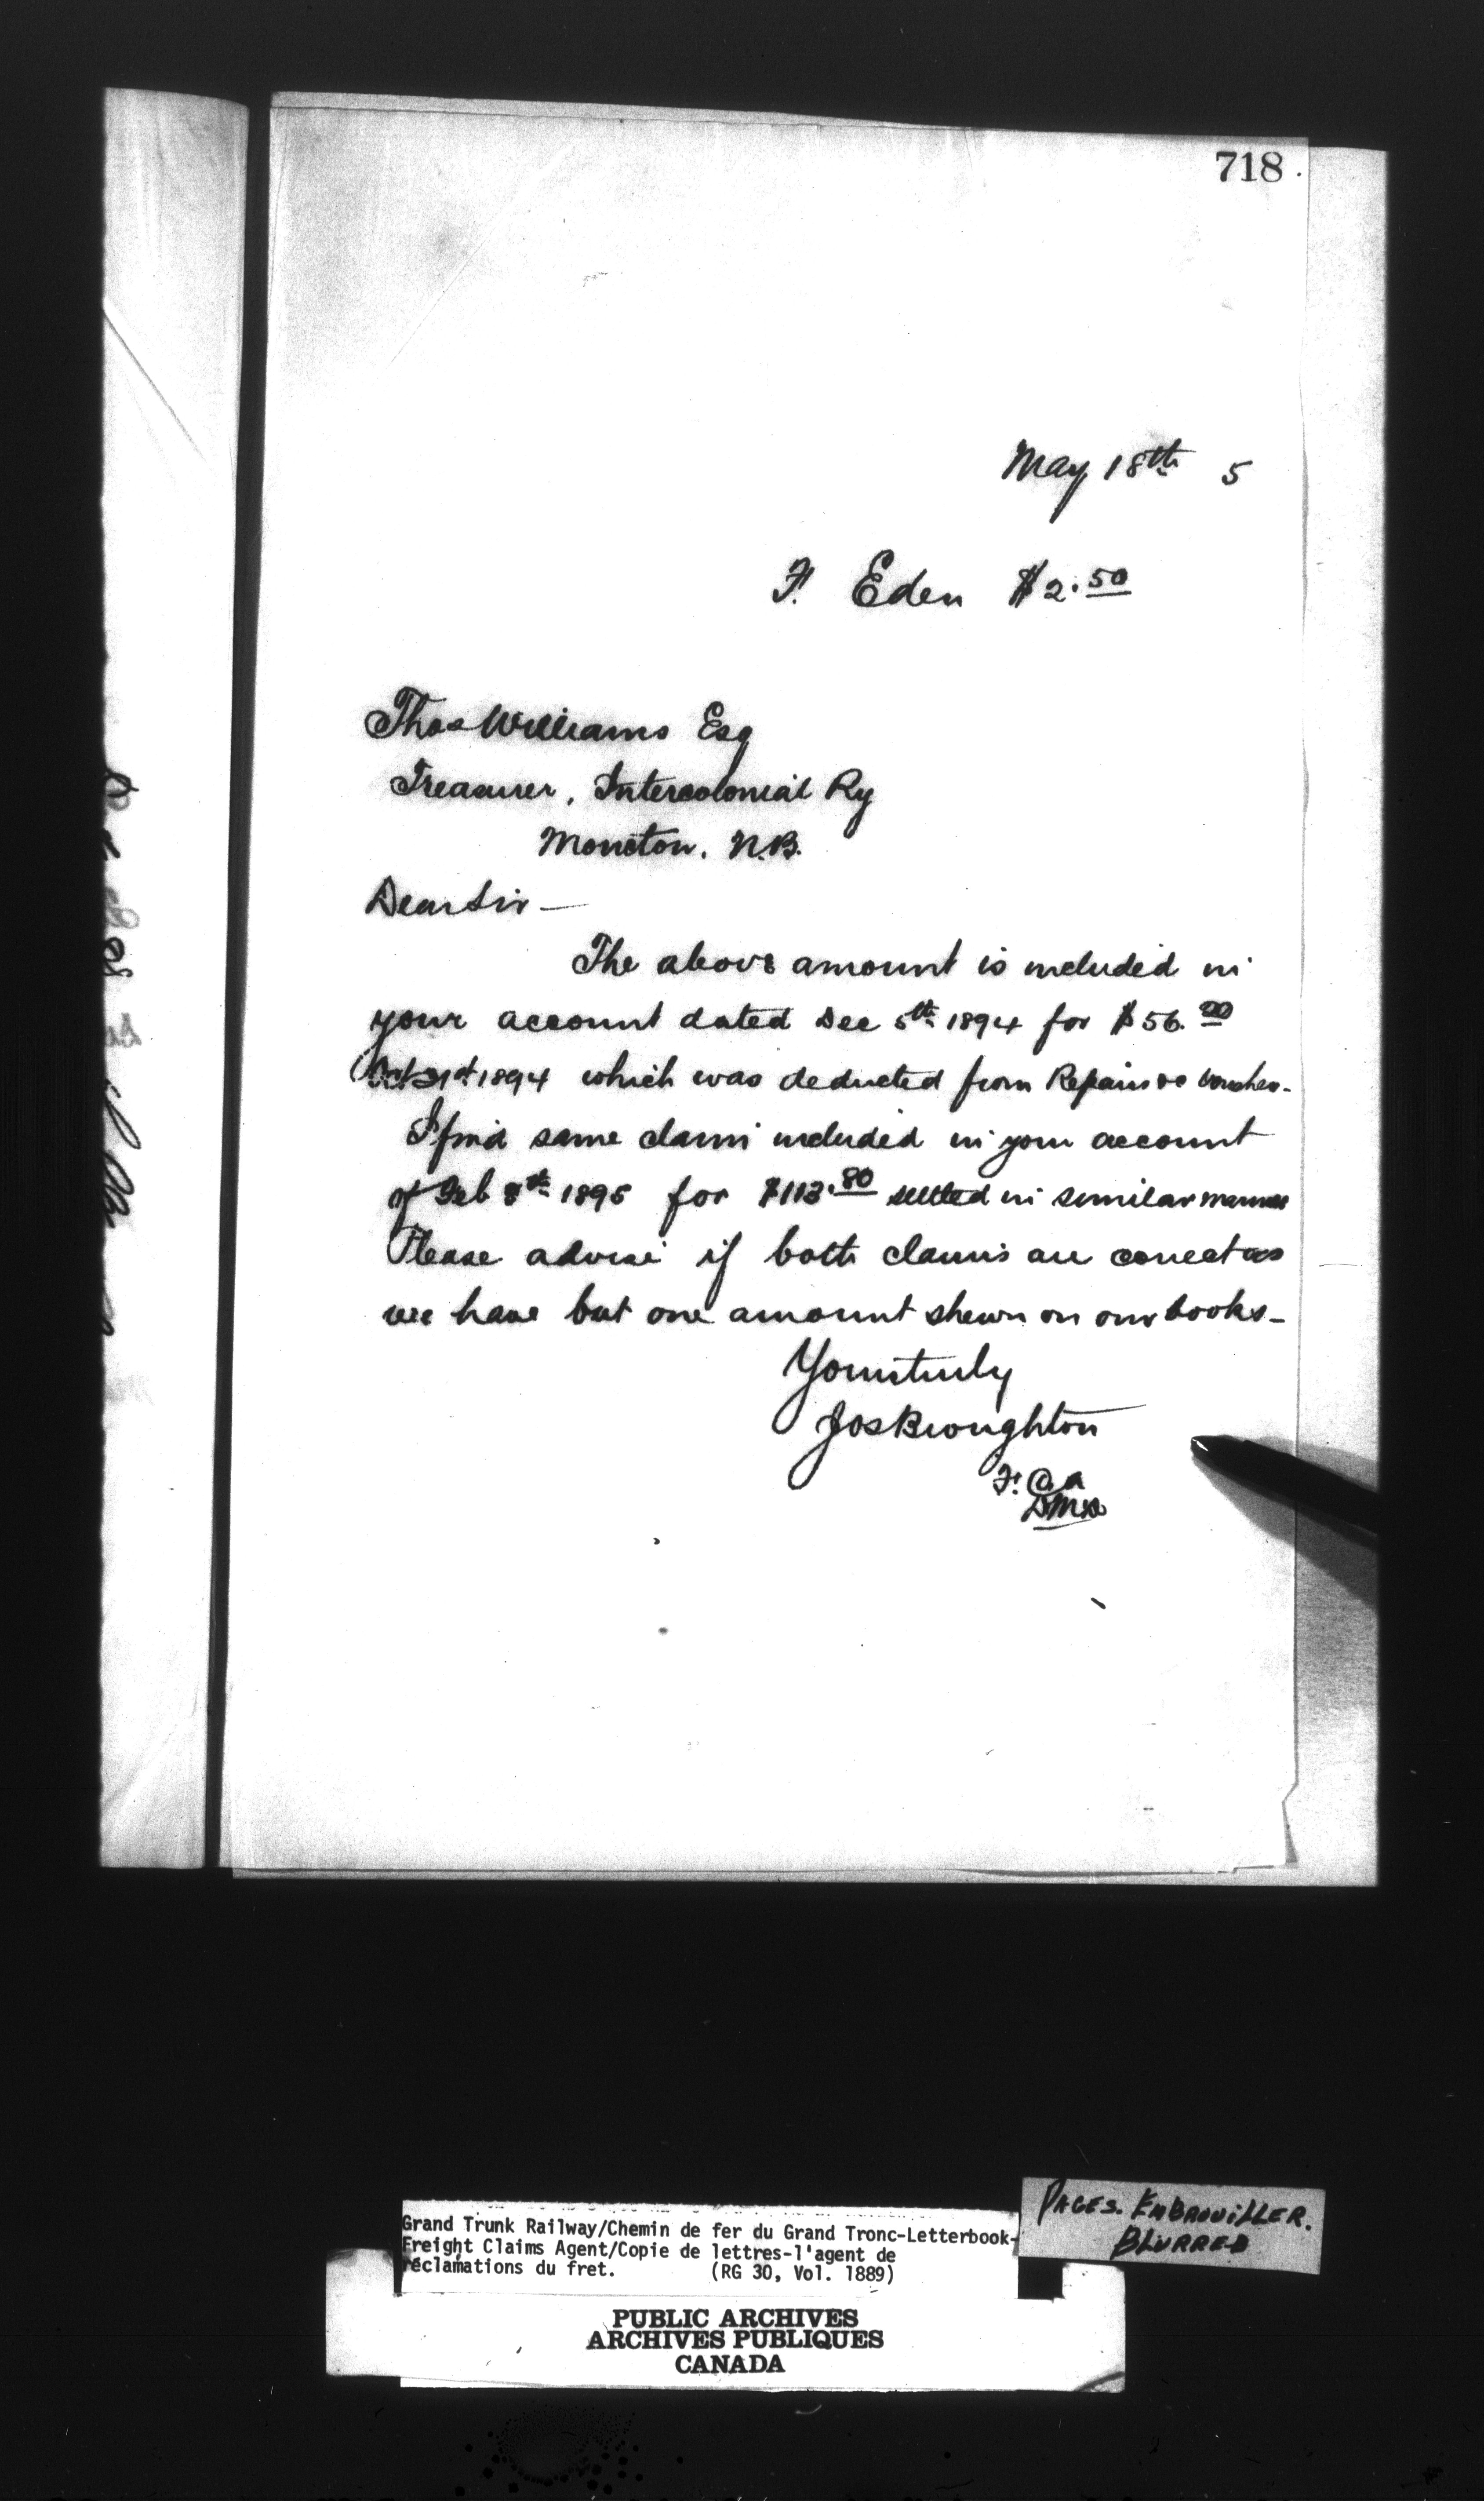 718
May 18th 5
F. Eden $2.50
Thos Williams Esq
Treasurer, Intercolonial Ry
Moncton. N.B.
Dear Sir —
The above amount is included in
your account dated Dec 5th 1894 for $56.00
Oct 31st 1894 which was deducted from Repairs voucher-
I find same claim included in your account
of Feb 8th 1895 for $113.80 settled in similar manner
Please advise if both claims are correct as
we have but one amount shewn on our books -
Yours truly
Jos Broughton
F. C. A
PAGES. EMBROUILLER.
BLURRED
Grand Trunk Railway/Chemin de fer du Grand Tronc-Letterbook-
Freight Claims Agent/Copie de lettres-l'agent de
réclamations du fret. (RG 30, Vol. 1889)
PUBLIC ARCHIVES
ARCHIVES PUBLIQUES
CANADA